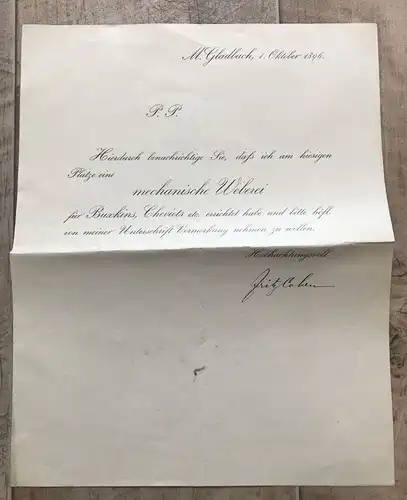 M. Gladbach, 1. Oktober 1896.
P. P.
Hierdurch benachrichtige Sie, daſs ich am hiesigen
Platze eine
mechanische Weberei
für Buxkins, Cheviots etc. errichtet habe und bitte höfl.
von meiner Unterschrift Vormerkung nehmen zu wollen.
Hochachtungsvoll
Fritz Cohen